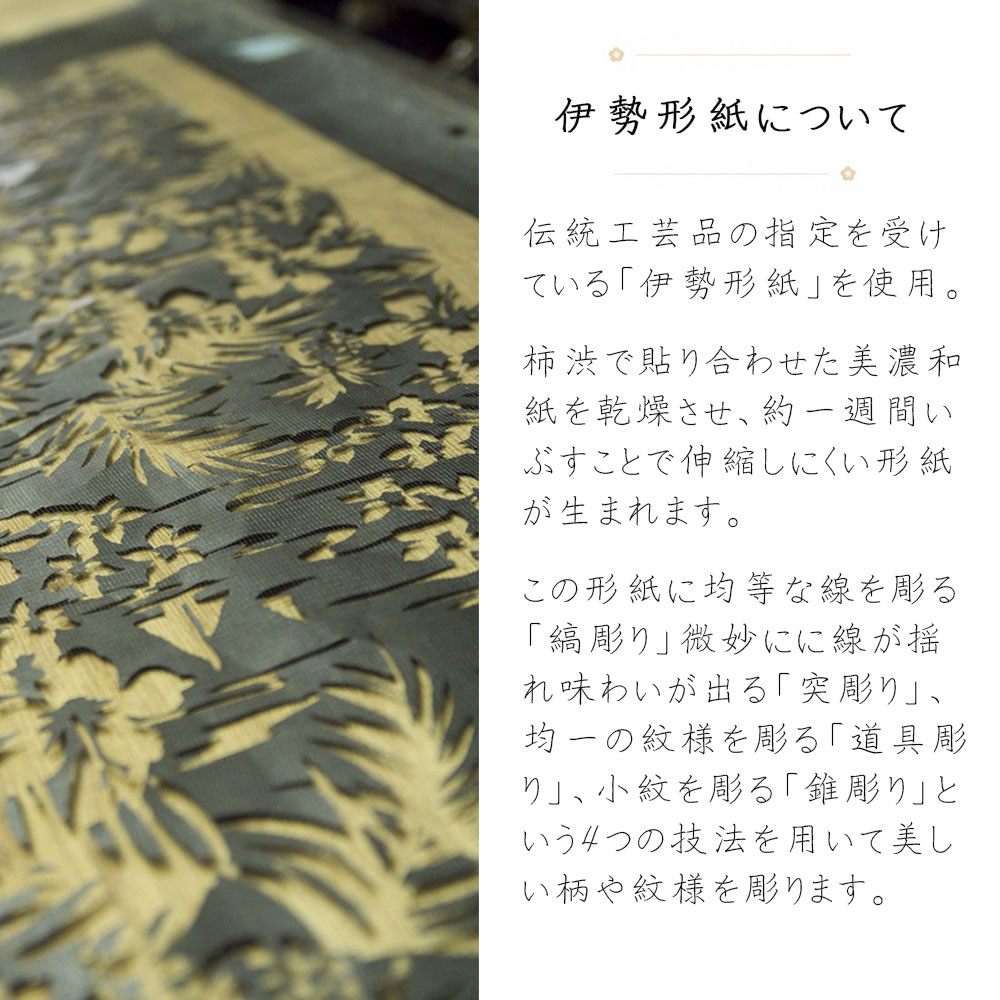 伊勢形紙について
伝統工芸品の指定を受け
ている「伊勢形紙」を使用。
柿渋で貼り合わせた美濃和
紙を乾燥させ、約一週間い
ぶすことで伸縮しにくい形紙
が生まれます。
この形紙に均等な線を彫る
「縞彫り」微妙にに線が揺
れ味わいが出る「突彫り」、
均一の紋様を彫る「道具彫
り」、小紋を彫る「錐彫り」と
いう4つの技法を用いて美し
い柄や紋様を彫ります。